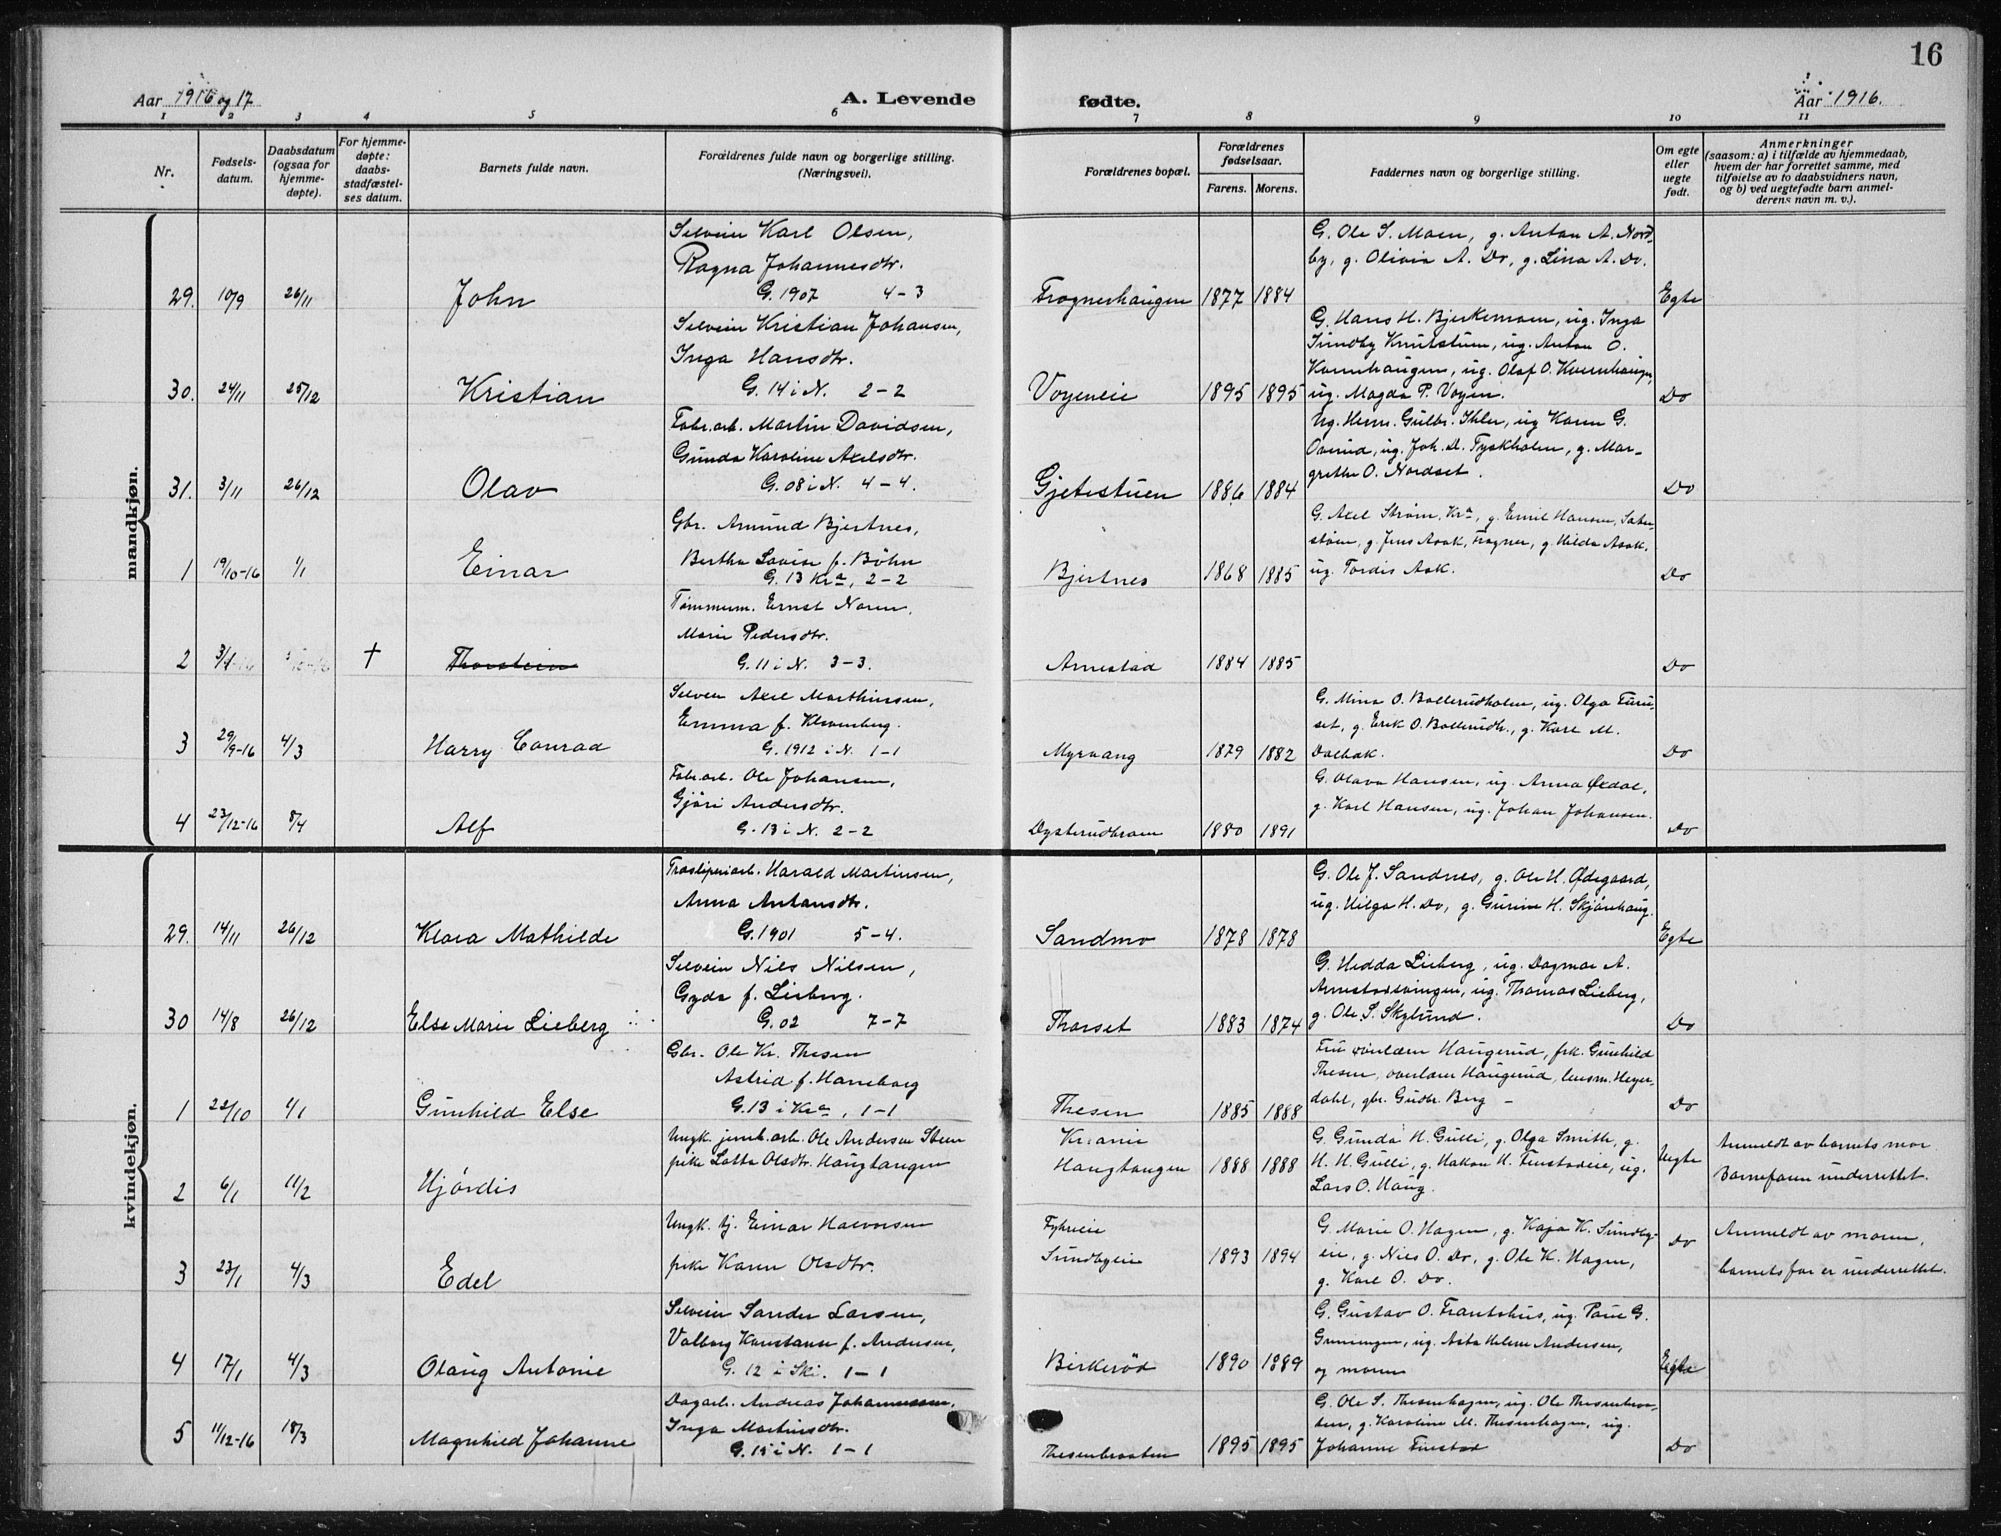 16
Aar 1916 og 17
A. Levende
fødte.
Aar 1916.
1 2 3 4 5 6 7 8 9 10 11
Nr.
Fødsels-
datum.
Daabsdatum
(ogsaa for
hjemme-
døpte).
For hjemme-
døpte:
daabs-
stadfæstel-
ses datum.
Barnets fulde navn.
Forældrenes fulde navn og borgerlige stilling.
(Næringsvei).
Forældrenes bopæl.
Forældrenes
fødselsaar.
Farens. Morens.
Faddernes navn og borgerlige stilling.
Om egte
eller
uegte
født.
Anmerkninger
(saasom: a) i tilfælde av hjemmedaab,
hvem der har forrettet samme, med
tilføielse av to daabsvidners navn,
og b) ved uegtefødte barn anmel-
derens navn m. v.).
mandkjøn.
29. 10/9 26/11 John
Selveier Karl Olsen,
Ragna Johannesdtr.
G. 1907 4-3
Frognerhaugen 1877 1884
G. Ole S. Moen, g. Anton A. Nord-
by, g. Olivia A. Do, g. Lina A. Do.
Egte
30. 24/11 25/12 Kristian
Selveier Kristian Johansen,
Inga Hansdtr.
G. 14 i N. 2-2
Voyeneie 1895 1895
G. Hans H. Bjerkemoen, ug. Inga
Sundby Knutstuen, ug. Anton O.
Kvernhaugen, ug. Olaf O. Kvernhaugen,
ug. Magda P. Voyen.
Do
31. 3/11 26/12 Olav
Fabr.arb. Martin Davidsen,
Gunda Karoline Axelsdtr.
G. 08 i N. 4-4.
Gjetestuen 1886 1884
Ug. Herm. Gulbr. Ihler, ug Karen G.
Overud, ug. Joh. D. Tyskholen, g. Mar-
grethe O. Nordset.
Do
1 19/10-16 1/1 Einar
Gbr. Amund Bjertnes,
Bertha Lovise f. Böhn
G. 13 Kra, 2-2
Bjertnes 1868 1885
G. Axel Strøm, Kra, g. Emil Hansen,
g. Jens Aask, Frogner, g. Hilda Aask,
ug. Tordis Ask.
Do
2 † Thorstein
Tømmerm. Ernst Noren,
Marie Pedersdtr.
G. 11 i N. 3-3.
Arnestad 1884 1885
Do
3 29/9-16 4/3 Harry Conrad
Selveier Axel Marthinsen,
Emma f. Klevenberg.
G. 1912 i N. 1-1
Myrvang 1879 1882
G. Mina O. Bollerudholen, ug. Olga Furu-
set, g. Erik O. Bollerudh., g. Karl M.
Dalbak.
Do
4 23/12-16 8/4 Alf
Fabr.arb. Ole Johansen,
Gjöri Andersdtr.
G. 13 i N. 2-2
Dysterudbraan 1880 1891
G. Olava Hansen, ug. Anna Øxdal,
g. Karl Hansen, ug. Johan Johansen.
Do
kvindekjøn.
29. 14/11 26/12 Klara Mathilde
Træsliperiarb. Harald Martinsen,
Anna Antonsdtr.
G. 1901 5-4.
Sandmo 1878 1878
G. Ole J. Sandnes, g. Ole H. Ødegaard,
ug. Helga H. Do, g. Gurine H. Skjönhaug.
Egte
30 14/8 26/12 Else Marie Lieberg
Selveier Nils Nilsen,
Gyda f. Lieberg.
G. 02 7-7
Thorset 1883 1874
G. Hedda Lieberg, ug. Dagmar A.
Arnestadsvingen, ug. Thomas Lieberg,
g. Ole S. Skylund.
Do
1 22/10 4/1 Gunhild Else
Gbr. Ole Kr. Thesen
Astrid f. Haneborg
G. 13 i Kra, 1-1
Thesen 1885 1888
Fru overlærer Haugerud, frk. Gunhild
Thesen, overlærer Haugerud, lensm. Heyer-
dahl, gbr. Gudbr. Berg -
Do
2 6/1 11/2 Hjördis
Ungk. jernb.arb. Ole Andersen Steen
pike Lotte Olsdtr. Haugtangen
Kr.ania
Haugtangen 1888 1888
G. Gunda H. Gulli, g. Olga Smith, g.
H. H. Gulli, g. Hakon H. Finstadeie, ug.
Lars O. Haug.
Uegte
Anmeldt av barnets mor
Barnefaren underrettet.
3 23/1 4/3 Edel
Ungk. tj. Einar Halvorsen
pike Karen Olsdtr.
Sundbyeie 1893 1894
G. Marie O. Hagen, g. Kaja K. Sundby-
eie, g. Nils O. Do, g. Ole K. Hagen,
g. Karl O. Do.
Do
Anmeldt av moren,
barnets far er underrettet.
4 17/1 4/3 Olaug Antonie
Selveier Sander Larsen,
Valborg Konstanse f. Andersen,
G. 12 i Ski. 1-1
Birkeröd 1890 1889
G. Gustav O. Frantshus, ug. Paul G.
ug. Asta Helene Andersen,
og moren
Egte
5 11/12-16 18/3 Magnhild Johanne
Dagarb. Andreas Johannessen,
Inga Martinsdtr.
G. 15 i N. 1-1
Thesenbraaten 1895 1895
G. Ole S. Thesenhagen, ug. Ole Thesenbraa-
ten, g. Karoline M. Thesenhagen, ug.
Johanne Finstad
Do